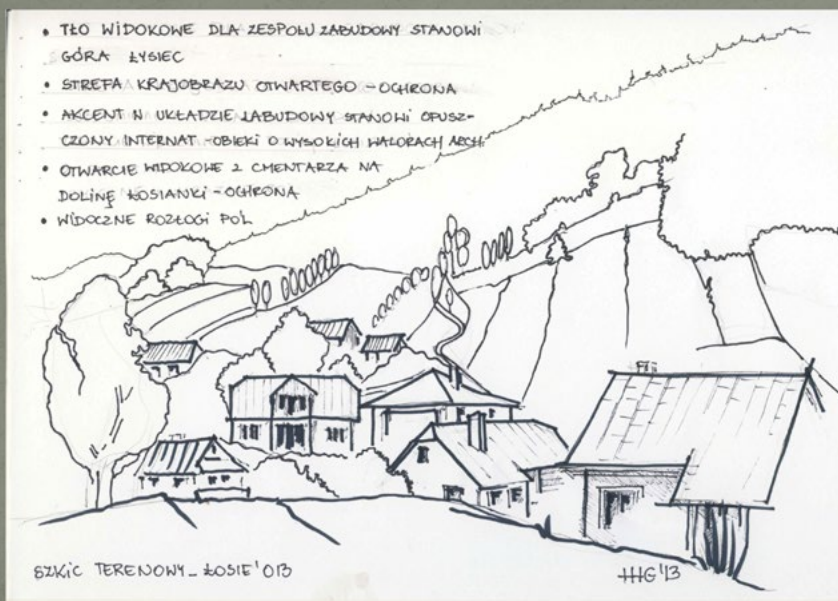 • TŁO WIDOKOWE DLA ZESPOŁU ZABUDOWY STANOWI
GÓRA ŁYSIEC
• STREFA KRAJOBRAZU OTWARTEGO - OCHRONA
• AKCENT W UKŁADZIE ZABUDOWY STANOWI OPUSZ-
CZONY INTERNAT - OBIEKT O WYSOKICH WALORACH ARCH.
• OTWARCIE WIDOKOWE Z CMENTARZA NA
DOLINĘ ŁOSIANKI - OCHRONA
• WIDOCZNE ROZŁOGI PÓL
SZKIC TERENOWY - ŁOSIE '013
HG '13